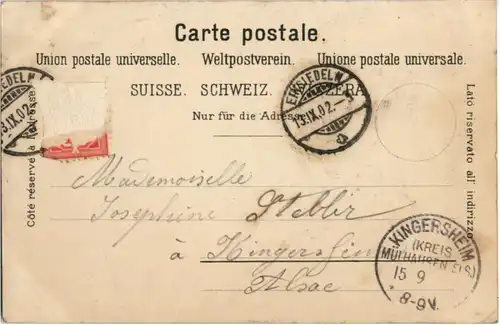 Carte postale.
Union postale universelle. Weltpostverein. Unione postale universale.
SUISSE. SCHWEIZ. SVIZZERA.
Nur für die Adresse
Côté réservé à l'adresse
Lato riservato all' indirizzo
EINSIEDELN
13.IX.02.
EINSIEDELN
13.IX.02.-5
Mademoiselle
Josephine
à Kingersheim
Alsac
KINGERSHEIM
(KREIS
MÜLHAUSEN ELS.)
15 9
8-9V.